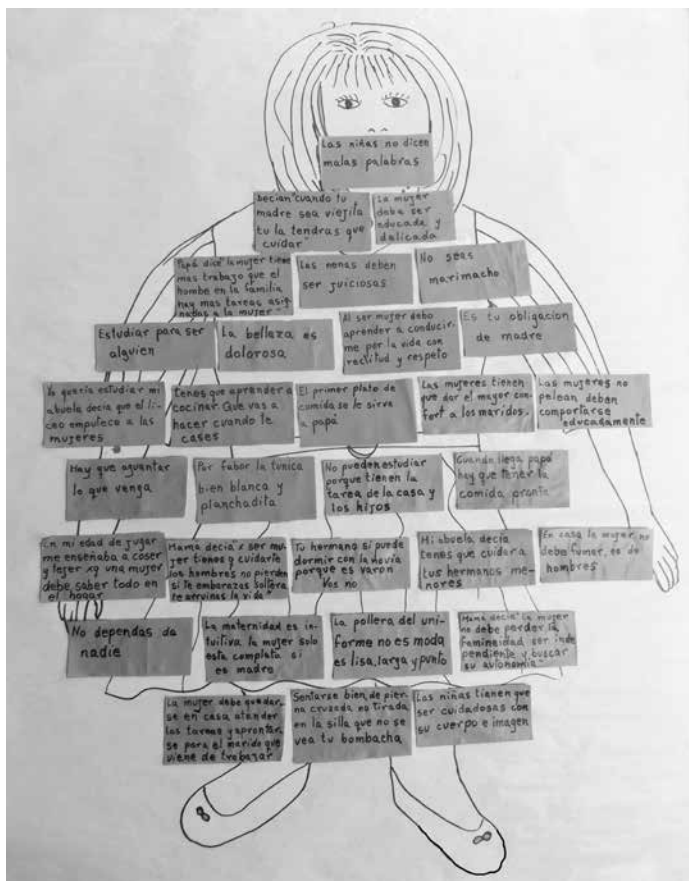 Las niñas no dicen
malas palabras
Decian "cuando tu
madre sea viejita
tu la tendras que
cuidar"
La mujer
debe ser
educada y
delicada
Papá dice "la mujer tiene
mas trabajo que el
hombe en la familia
hay mas tareas asig
nadas a la mujer"
Las nenas deben
ser juiciosas
No seas
marimacho
Estudiar para ser
alguien
La belleza es
dolorosa
Al ser mujer debo
aprender a conducir-
me por la vida con
rectitud y respeto
Es tu obligacion
de madre
Yo queria estudiar mi
abuela decia que el li-
ceo emputece a las
mujeres
tenes que aprender a
cocinar. Que vas a
hacer cuando te
cases
El primer plato de
comida se le sirve
a papá
Las mujeres tienen
que dar el mayor con-
fort a los maridos.
Las mujeres no
pelean deben
comportarse
educadamente
Hay que aguantar
lo que venga
Por fabor la tunica
bien blanca y
planchadita
No pueden estudiar
porque tienen la
tarea de la casa y
los hijos
Cuando llega papá
hay que tener la
comida pronta
En mi edad de jugar
me enseñaba a coser
y tejer xq una mujer
debe saber todo en
el hogar
Mamá decia "x ser mu-
jer tienes q cuidarte
los hombres no pierden
si te embarazas soltera
te arruinas la vida"
Tu hermano si puede
dormir con la novia
porque es varon
Vos no
Mi abuela decia
tenes que cuidar a
tus hermanos me-
nores
En casa la mujer no
debe fumar, es de
hombres
No dependas de
nadie
La maternidad es in-
tuitiva la mujer solo
esta completa si
es madre
La pollera del uni-
forme no es moda
es lisa, larga y punto
Mamá decia "la mujer
no debe perder la
femineidad, ser inde
pendiente y buscar
su autonomia"
La mujer debe quedar-
se en casa, atender
las tareas y aprontar-
se para el marido que
viene de trabajar
Sentarse bien, de pier-
na cruzada no tirada
en la silla que no se
vea tu bombacha
Las niñas tienen que
ser cuidadosas con
su cuerpo e imagen